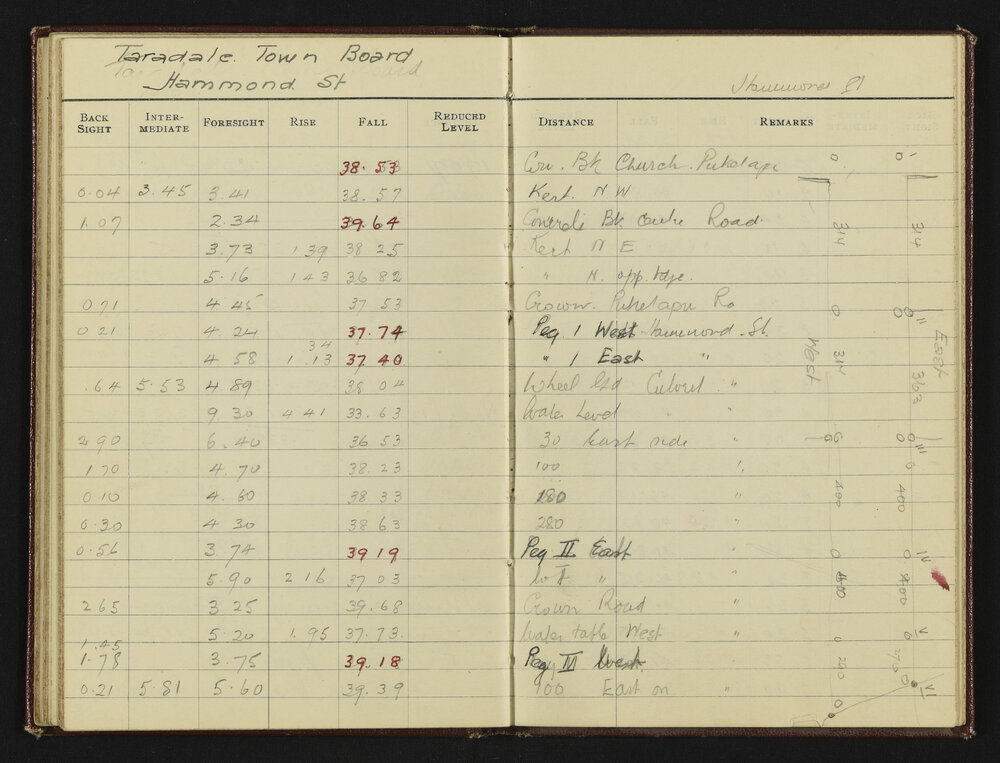 Taradale Town Board
Hammond St
Hammond St
BACK SIGHT INTER-MEDIATE FORESIGHT RISE FALL REDUCED LEVEL DISTANCE REMARKS
38.53 Bk Church Puketapu
0.04 3.45 3.41 38.57 Kerb N W
1.07 2.34 39.64 Bk Road
3.73 1 39 38 25 Kerb N E
5.16 1 43 36 82 " N. opp.
0 71 4 45 37 53 Crown Puketapu Rd
0 21 4 24 37.74 Peg 1 West Hammond St.
34
4 58 1 13 37 40 " 1 East "
.64 5.53 4 89 38 04 Wheel Gd Culvert "
9 30 4 41 33.63 Water Level "
2 90 6.40 36 53 30 East side "
1 70 4.70 38.23 100 "
0.10 4.60 38 33 180 "
0.30 4 30 38 63 280 "
0.56 3 74 39 19 Peg II East "
5.90 2 16 37 03 W T " "
2 65 3 25 39.68 Crown Road "
5.20 1.95 37.73 Water table West "
1.45
1.78 3.75 39.18 Peg III West
0.21 5.81 5.60 39.39 100 East on "
0 314 0 314 West
0 314 0 East 3103
0 400 0 400 0 200 0
II 0 400 0 IV 400 V 0 VI